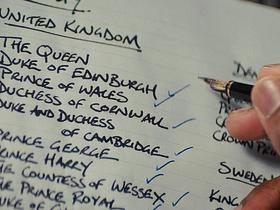 UNITED KINGDOM
THE QUEEN
DUKE OF EDINBURGH
PRINCE OF WALES
DUCHESS OF CORNWALL
DUKE AND DUCHESS
OF CAMBRIDGE
PRINCE GEORGE
PRINCE HARRY
THE COUNTESS OF WESSEX
THE PRINCE ROYAL
DUKE OF
CROWN
CROWN PRI
SWEDEN
KING